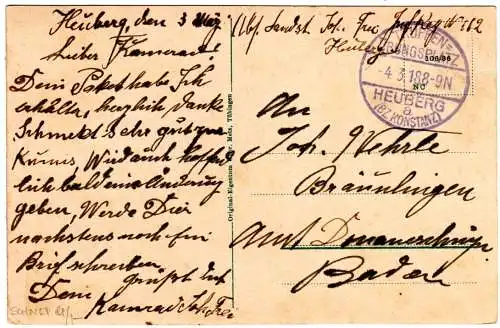 Heuberg, den 3 März
Lieber Kamerad!
Dein Paket habe Ich
erhalten, herzlich danke
Schmeckt Sehr gut zum
Kumis Wird auch hoffent
lich bald eine Änderung
geben, Werde Dier
nachstens noch ein
Brief schreiben
Grüßt dich
Dein
Kamrad Joh. Frei
Original-Eigentum Metz, Tübingen
Abs. Landst. Joh. Frei
Heuberg
TRUPPEN=
ÜBUNGSPLATZ
- 4.3.18 8-9N
HEUBERG
a
(BZ. KONSTANZ)
106/36
NO
An
Joh. Wehrle
Bräunlingen
Amt Donaueschingen
Baden